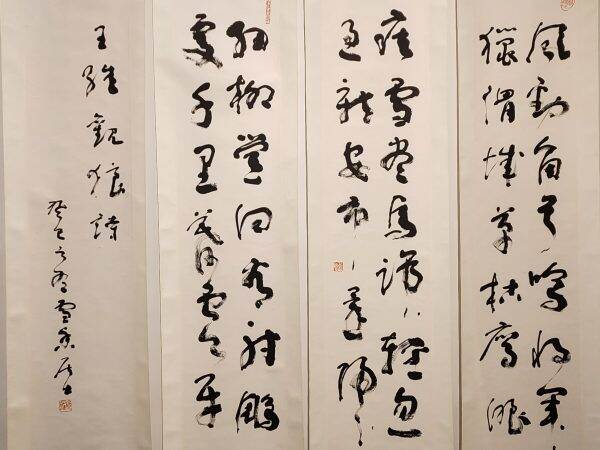 風勁角弓鳴將軍
獵渭城草枯鷹眼
疾雪盡馬蹄輕忽
過新豐市還歸
細柳營回看射鵰
處千里暮雲平
王維觀獵詩
癸巳之 雪 居士